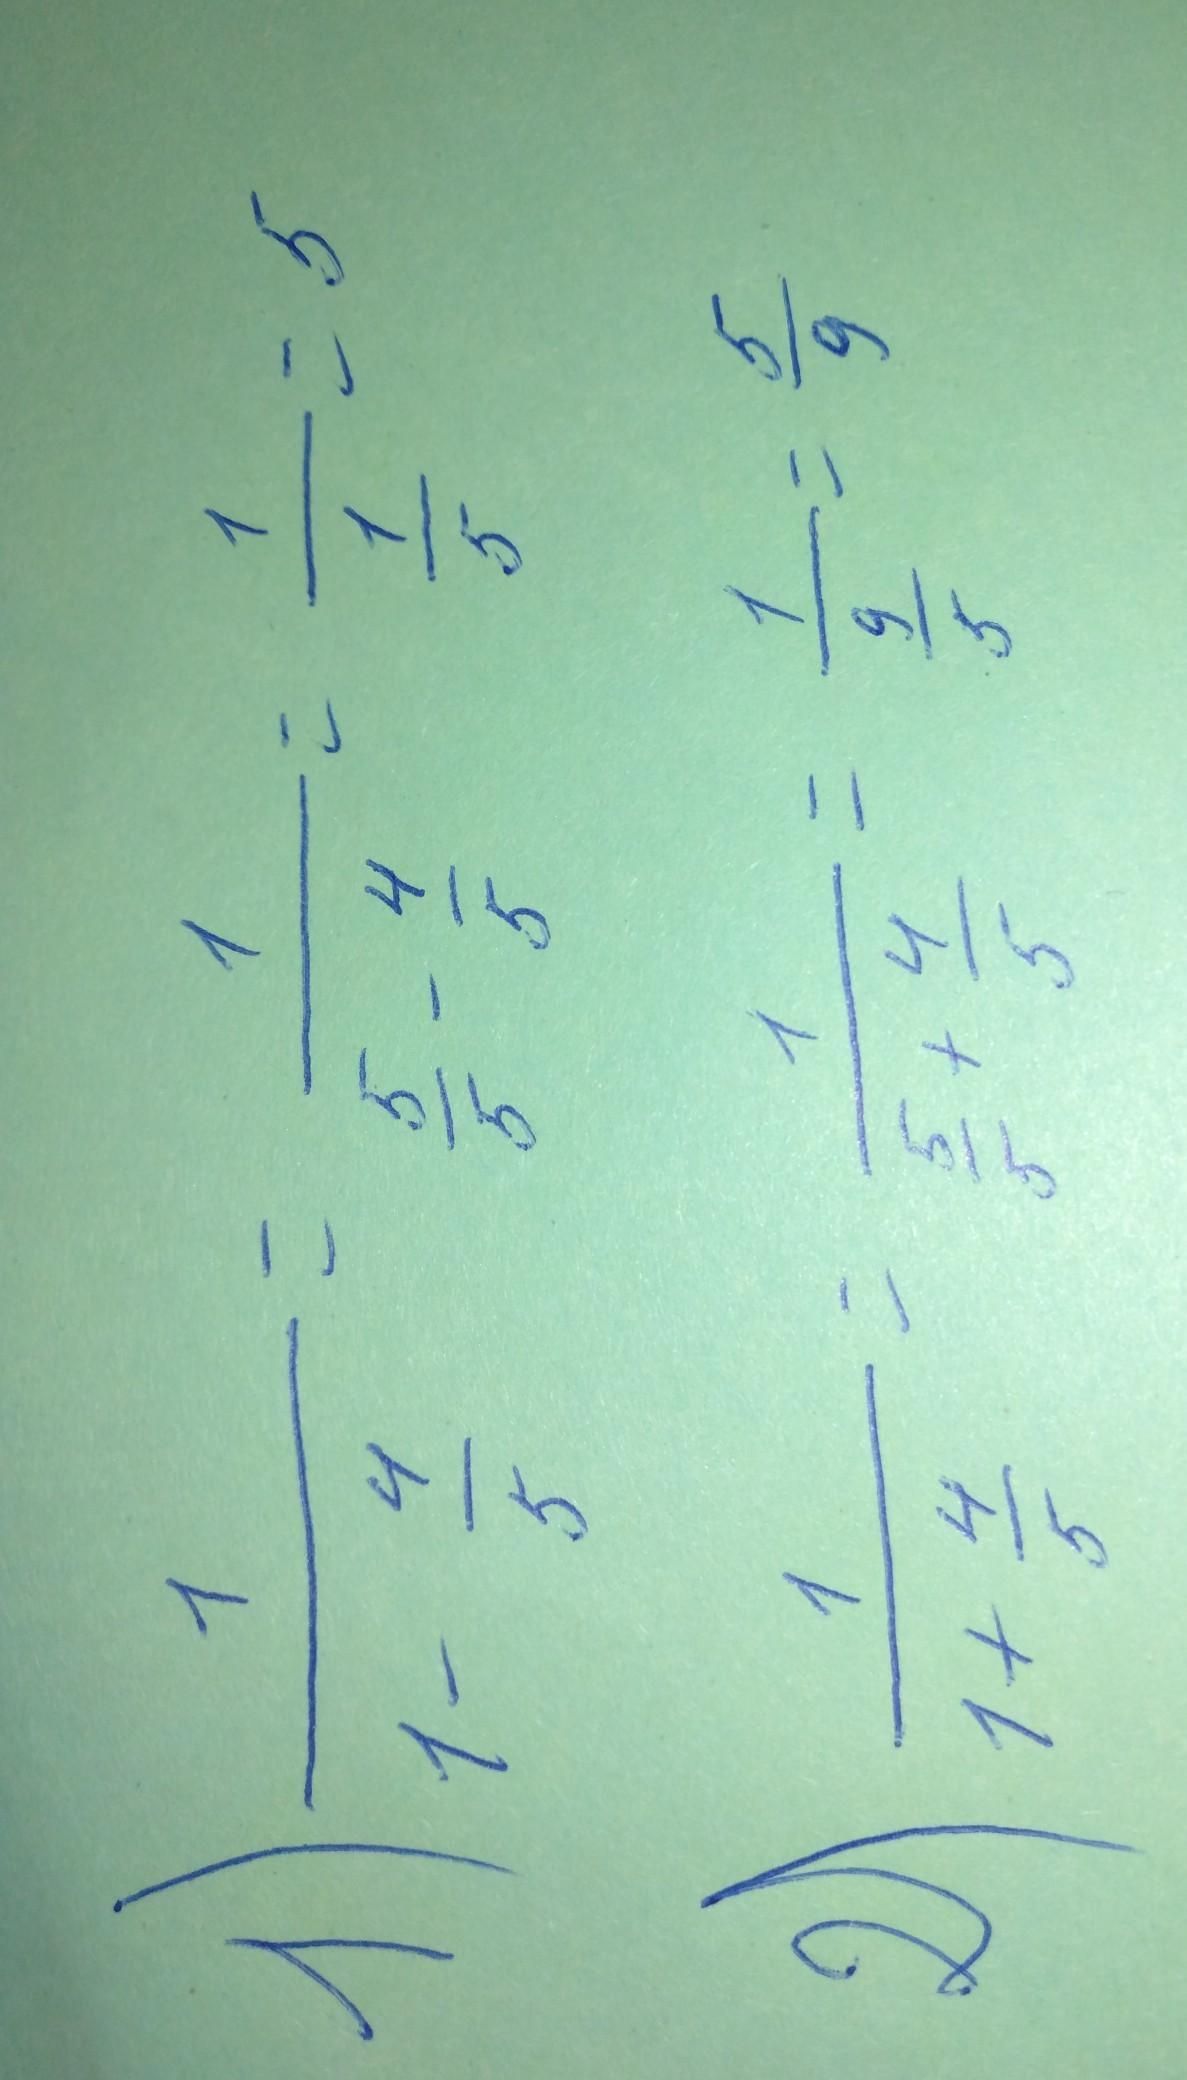 1) 1/(1 - 4/5) = 1/(5/5 - 4/5) = 1/(1/5) = 5
2) 1/(1 + 4/5) = 1/(5/5 + 4/5) = 1/(9/5) = 5/9